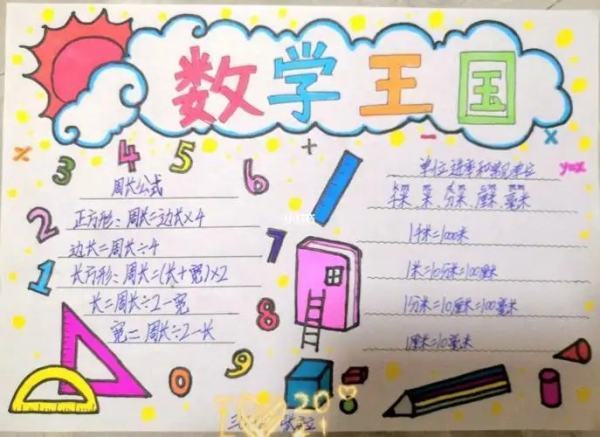 数学王国
% 3 4 5 6 + - x y=x
2 1 7 8 9 0
周长公式
正方形：周长=边长×4
边长=周长÷4
长方形：周长=(长+宽)×2
长=周长÷2-宽
宽=周长÷2-长
单位进率和常见单位
km m dm cm mm
千米 米 分米 厘米 毫米
1千米=1000米
1米=10分米=100厘米
1分米=10厘米=100毫米
1厘米=10毫米
2021